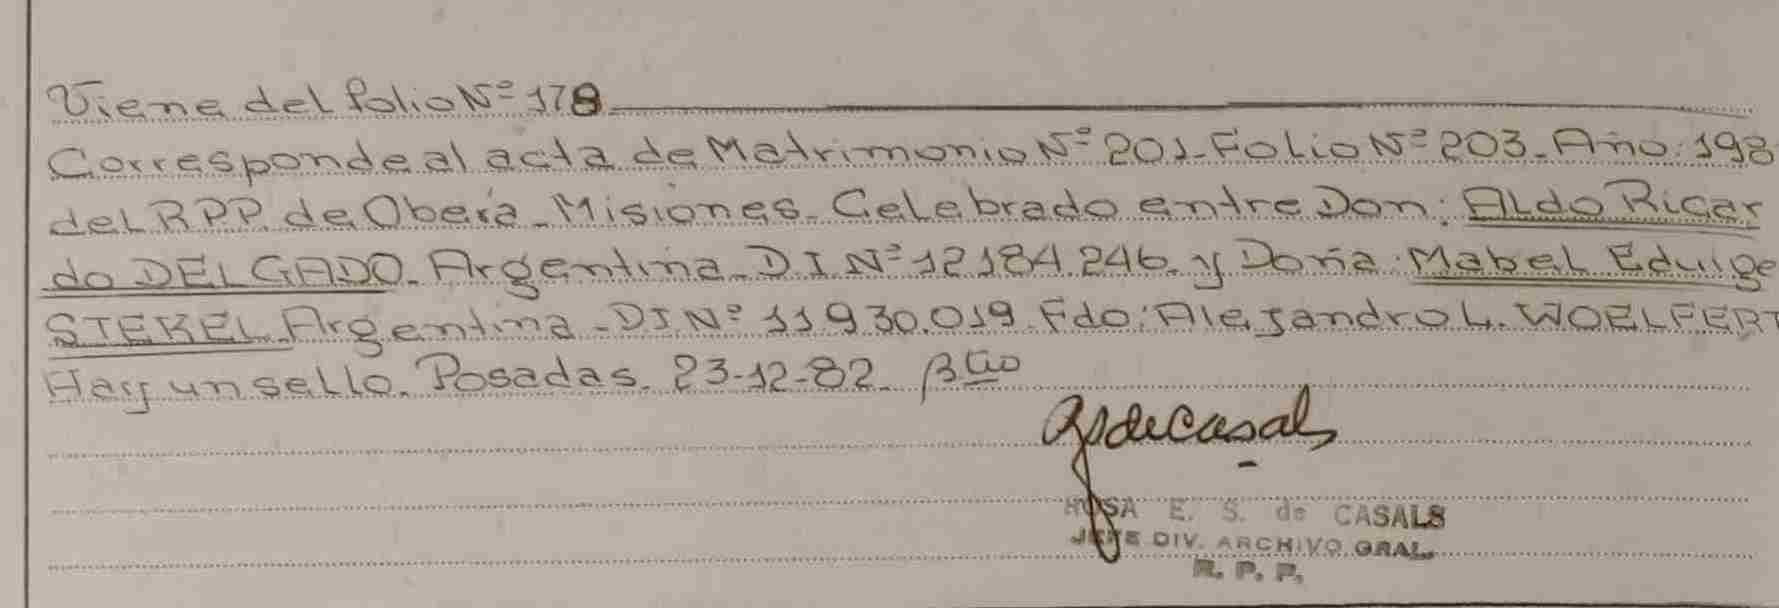 Viene del folio Nº 178
Corresponde al acta de Matrimonio Nº 201. Folio Nº 203. Año: 198
del RPP. de Oberá. Misiones. Celebrado entre Don: Aldo Ricar
do DELGADO. Argentina. D I Nº 12.184.246. y Doña: Mabel Eduige
STEKEL. Argentina. DI. Nº 11.930.019. Fdo: Alejandro L. WOELFERT
Hay un sello. Posadas. 23-12-82.
ROSA E. S. de CASALS
JEFE DIV. ARCHIVO GRAL.
R. P. P.